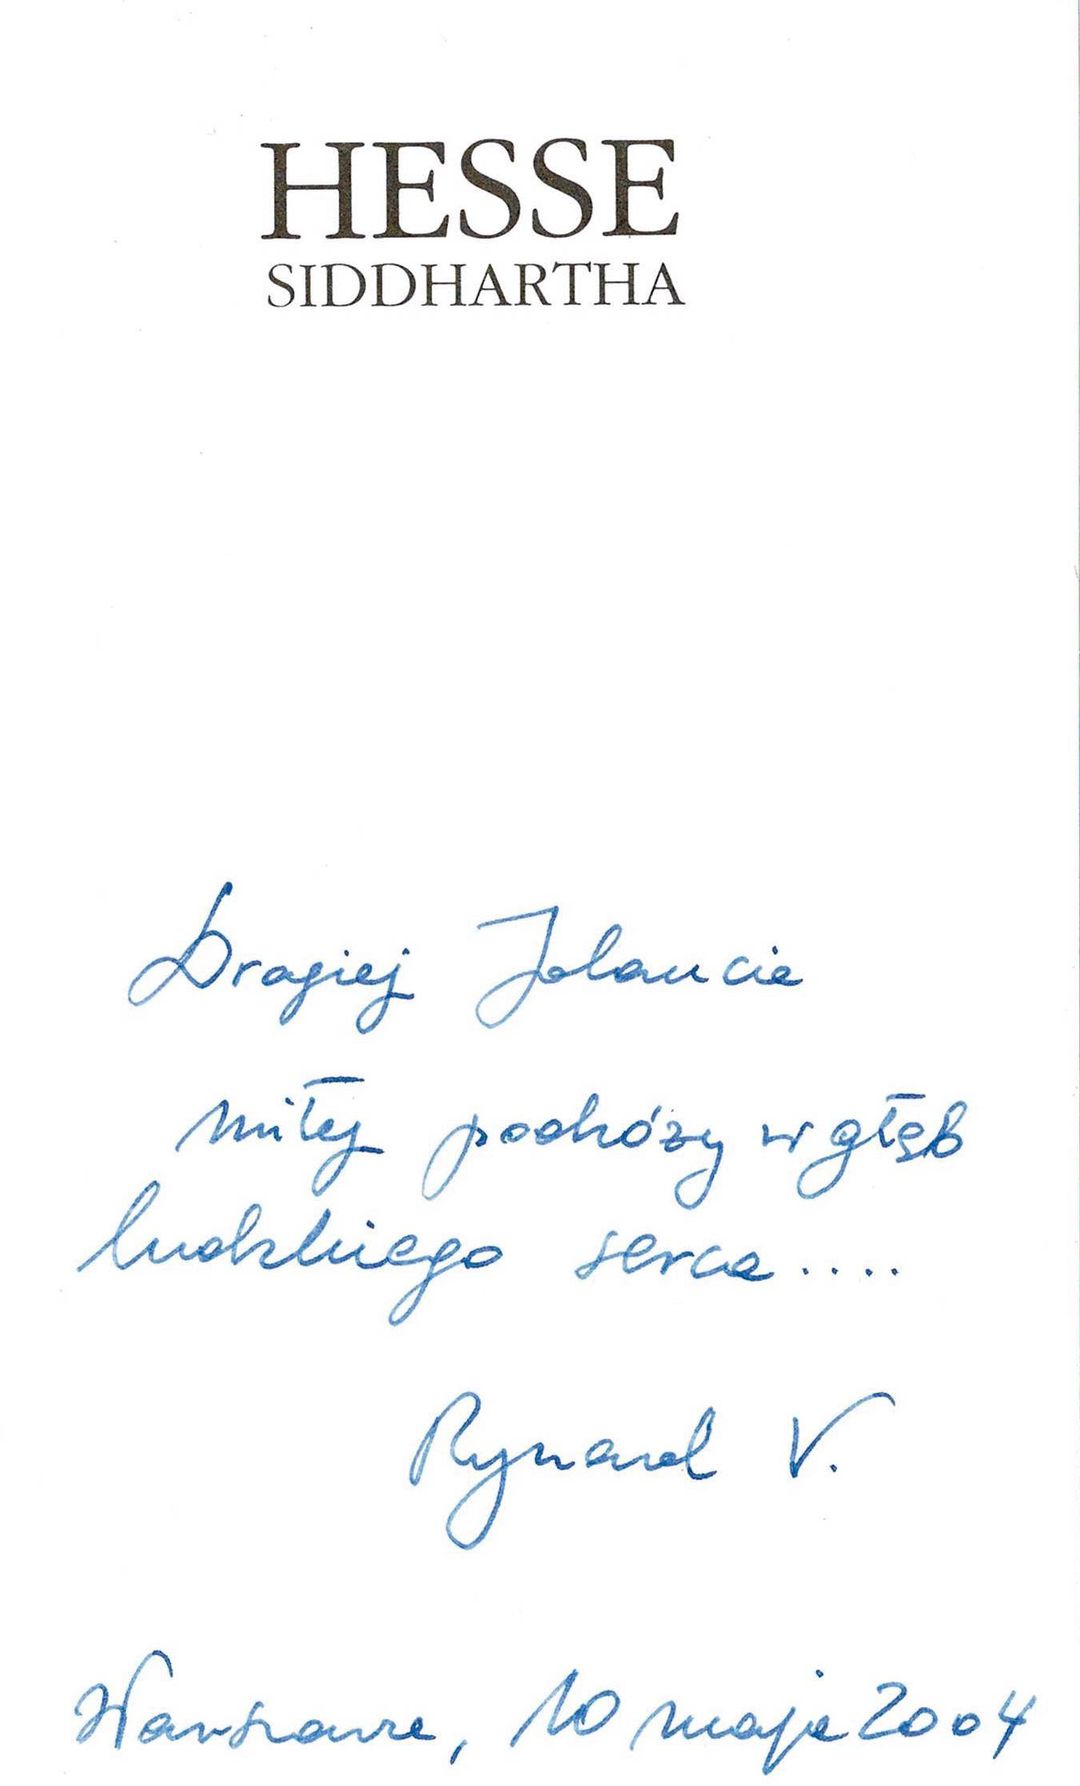 HESSE
SIDDHARTHA
Drogiej Jolancie
miłej podróży w głąb
ludzkiego serca....
Ryszard V.
Warszawa, 10 maja 2004